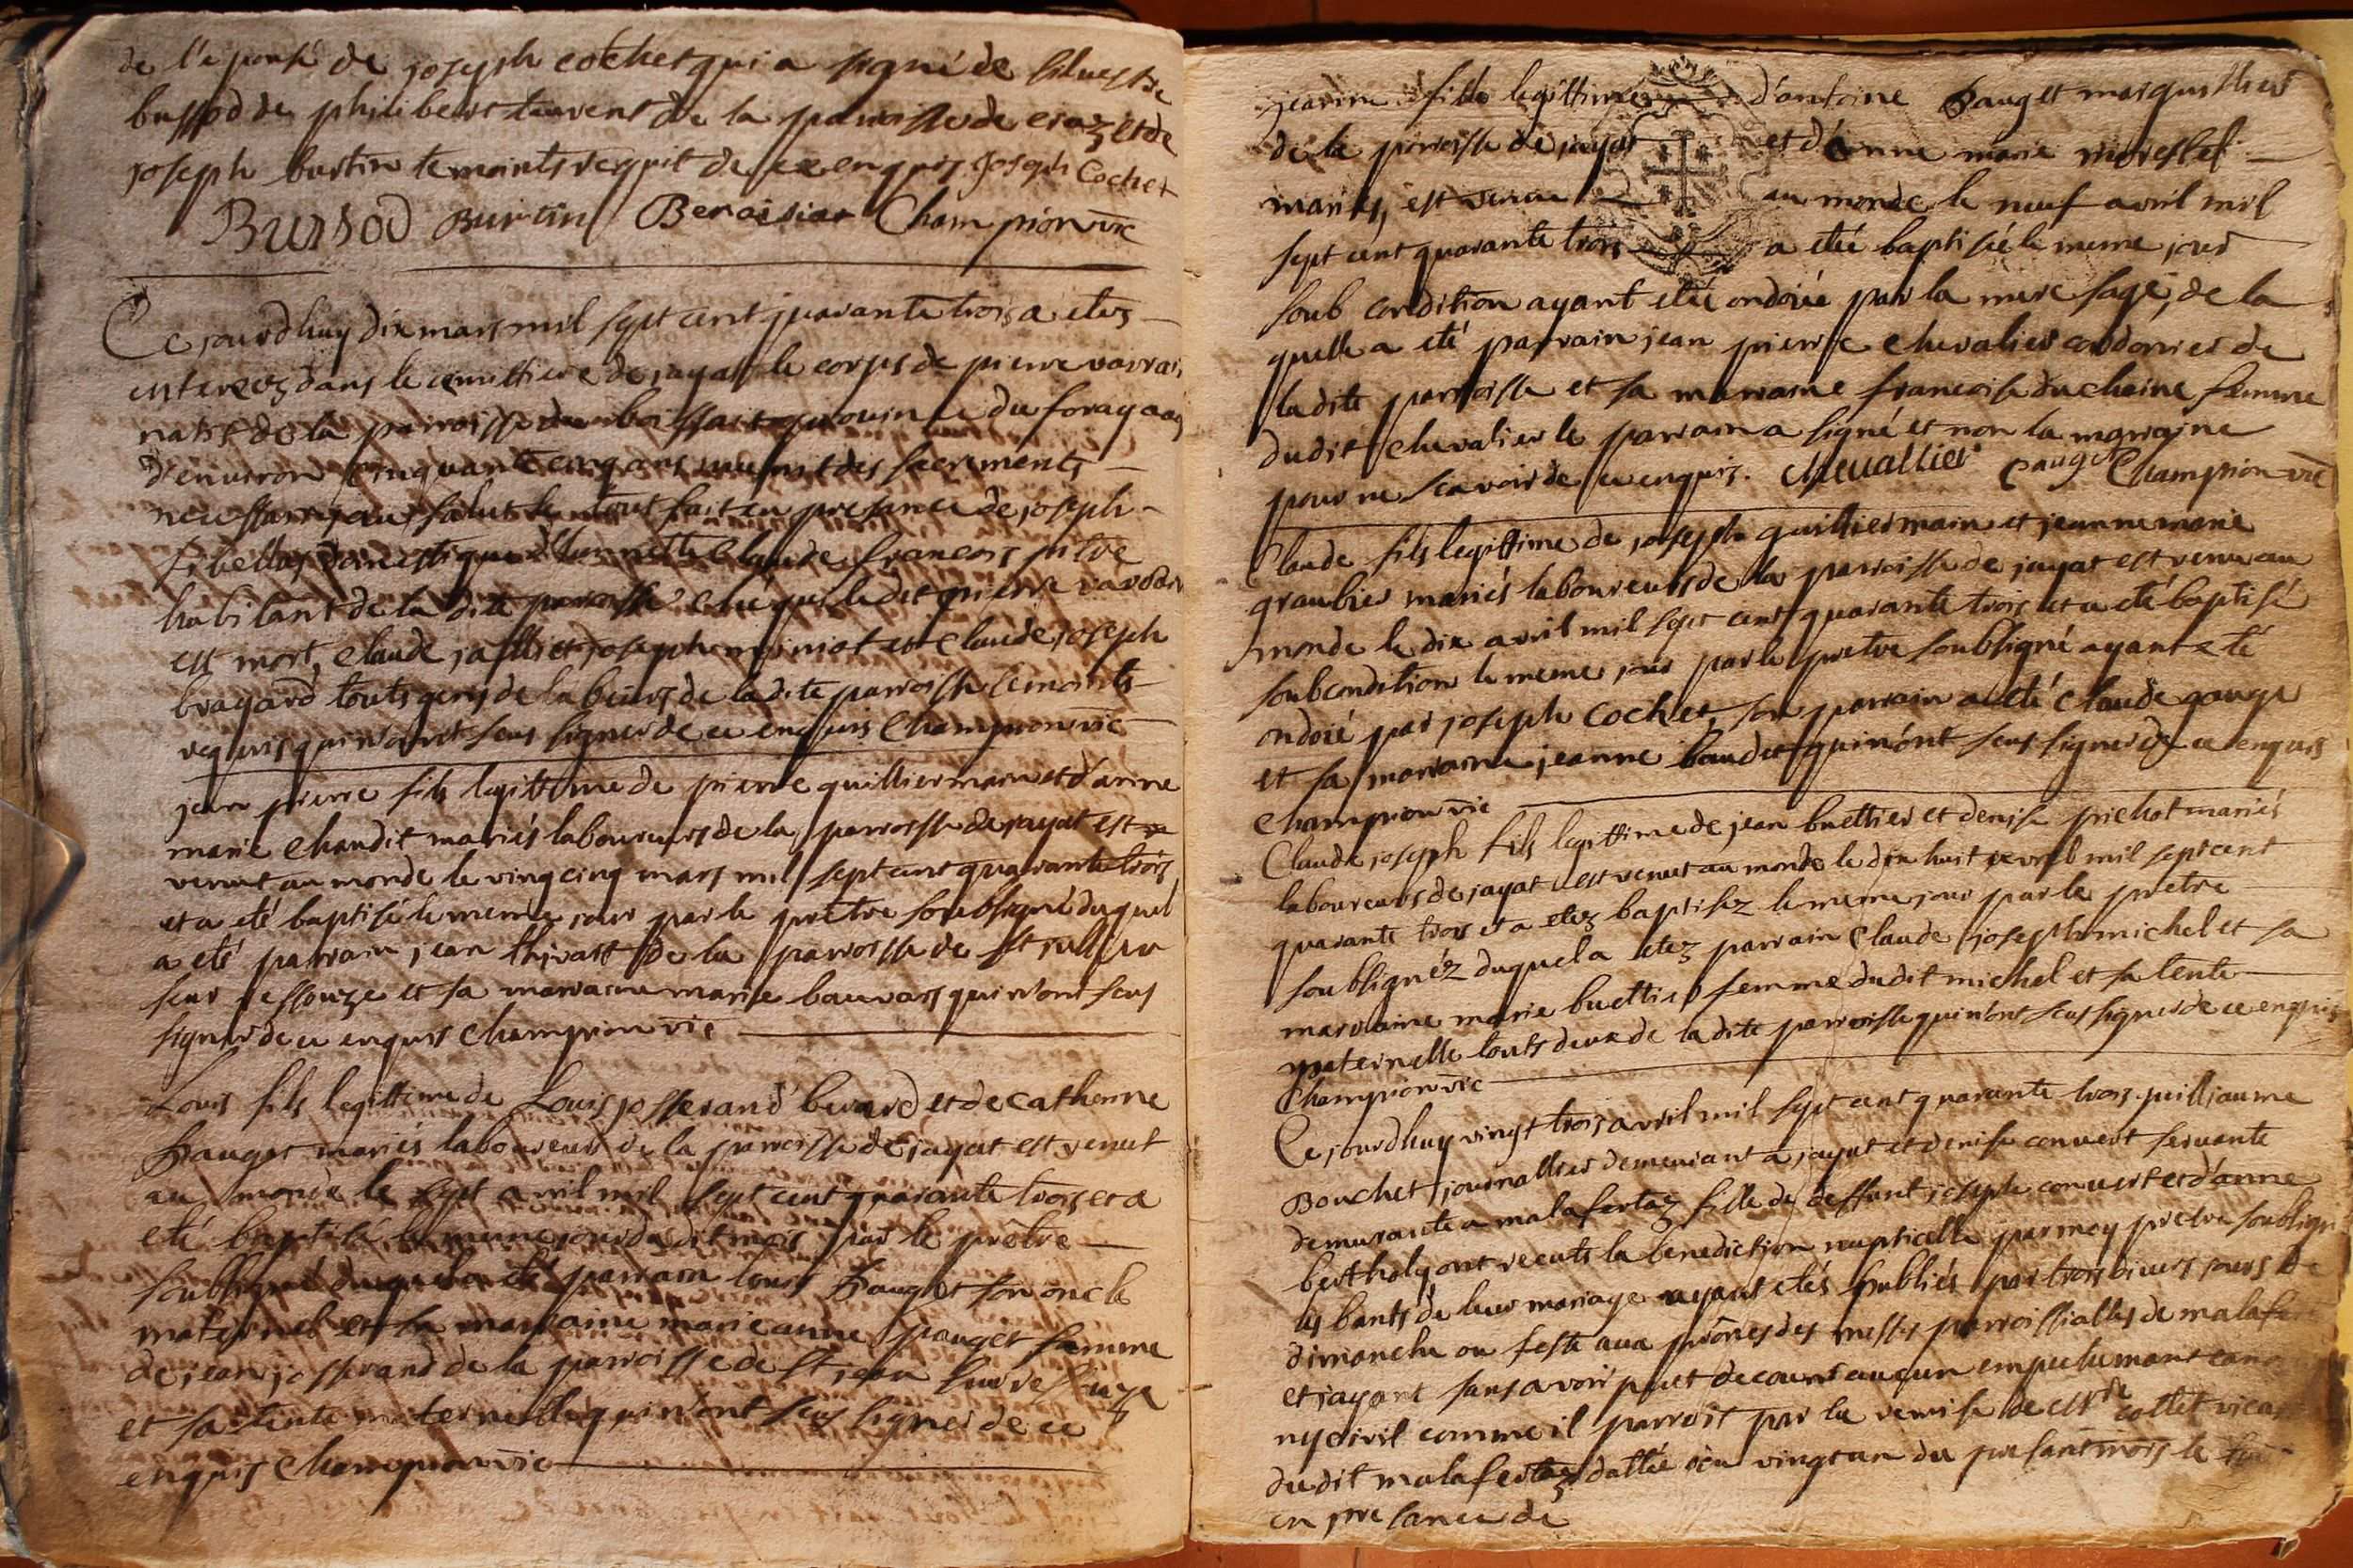 de l'epousé de joseph cochet qui a signé de silvestre
bussod de philibert laurent de la parroisse de craz et de
joseph burtin temoints requit de ce enquis Joseph Cochet
Bussod Burtin Benoi Champion vic
Ce jourdhuy dix mars mil sept cent quarante trois a etez
enterrez dans le cemittiere de jayat le corps de pierre
natif de la parroisse province du foray
d'environ cinquante cinq ans munit des sacrements
necessaires au salut le tout fait en presence de joseph
domestique Claude francois
habitant de la dite parroisse ché qui ledit pierre
est mort, Claude joseph et Claude joseph
bragard touts gens de labeurs de ladite parroisse temoints
requis qui n'ont seus signer de ce enquis Champion vic
jean pierre fils legittime de pierre quilliermain et d'anne
marie Chandit mariés laboureurs de la parroisse de jayat est
venut au monde le vingcinq mars mil sept cent quarante trois
et a eté baptisé le meme jour par le prêtre soubsigné duquel
a eté parrain jean thivast de la parroisse de st jullien
sur ressouze et sa marraine marie bauvais qui n'ont seus
signer de ce enquis Champion vic
Louis fils legittime de Louis josserand berard et de catherine
pauget mariés laboureurs de la parroisse de jayat est venut
au monde le sept avril mil sept cent quarante trois et a
eté baptisé le meme jour du dit mois par le prêtre
soubsigné duquel a eté parrain louis pauget son oncle
maternel et sa marraine marie anne pauget femme
de jean josserand de la parroisse de st jean sur ressouze
et sa tente maternelle qui n'ont seus signer de ce
enquis Champion vic
jeanne fille legittime d'antoine pauget marguillier
de la parroisse de jayat et d'anne marie morestel
mariés, est venue au monde le neuf avril mil
sept cent quarante trois a eté baptisée le meme jour
soub condition ayant eté ondoiée par la mere sage, de la
quelle a eté parrain jean pierre Chevalier cordonnier de
ladite parroisse et sa marraine francoise duchaine femme
dudit chevalier le parrain a signé et non la marraine
pour ne scavoir de ce enquis. Chevallier pauget Champion vic
Claude fils legittime de joseph quilliermain et jeanne marie
graubier mariés laboureurs de la parroisse de jayat est venu au
monde le dix avril mil sept cent quarante trois et a eté baptisé
soub condition le meme jour par le pretre soubsigné ayant eté
ondoié par joseph Cochet, son parrain a eté Claude gauge
et sa marraine jeanne baudet qui n'ont seus signer de ce enquis
Champion vic
Claude joseph fils legittime de jean buettier et denise prichot mariés
laboureurs de jayat est venut au monde le dix huit avril mil sept cent
quarante trois et a etez baptisez le meme jour par le prêtre
soubsignéz duquel a etez parrain Claude joseph michel et sa
marraine marie buettier femme dudit michel et sa tente
paternelle touts deux de ladite parroisse qui n'ont seus signer de ce enquis
Champion vic
Ce jourdhuy vingt trois avril mil sept cent quarante trois guilliaume
Bouchet journallier demeurant a jayat et denise convert servante
demurante a malafertaz fille de deffunt joseph convert et d'anne
bertholy ont recuts la benediction nupticelle par moy pretre soubsigné
les bants de leur mariage ayant etés publiés par trois divers jours de
dimanche ou feste aux prônes des messes parroissialles de malafertaz
et jayant sans avoir put decouvrir aucun empechemant
ny civil comme il parroit par la remise de collet vicaire
dudit malafertaz dattée du vingt un du presant mois le
en presance de